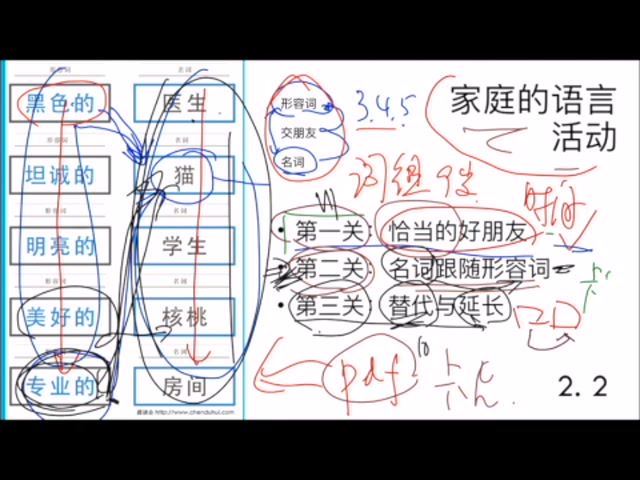 形容词 名词
黑色的 医生
形容词 名词
坦诚的 猫
形容词 名词
明亮的 学生
形容词 名词
美好的 核桃
形容词 名词
专业的 房间
http://www.chenduhui.com
形容词
交朋友
名词
3.4.5
家庭的语言
活动
词组
时间
• 第一关：恰当的好朋友
• 第二关：名词跟随形容词
• 第三关：替代与延长
pdf
2. 2